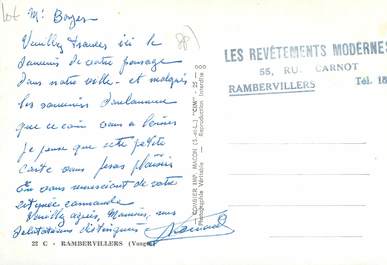 Mr Boyer
Veuillez trouver ici le
souvenir de votre passage
dans notre ville - et malgré
les souvenirs
que ce coin vous a
je pense que cette petite
carte vous fera plaisir
En vous remerciant de votre
commande
Veuillez agréer, Monsieur, mes
salutations distinguées
22 C - RAMBERVILLERS (Vosges)
COMBIER IMP. MACON (S.-et-L.) "CIM"
Photographie Véritable - Reproduction Interdite
LES REVÊTEMENTS MODERNES
55, RUE CARNOT
RAMBERVILLERS Tél. 18